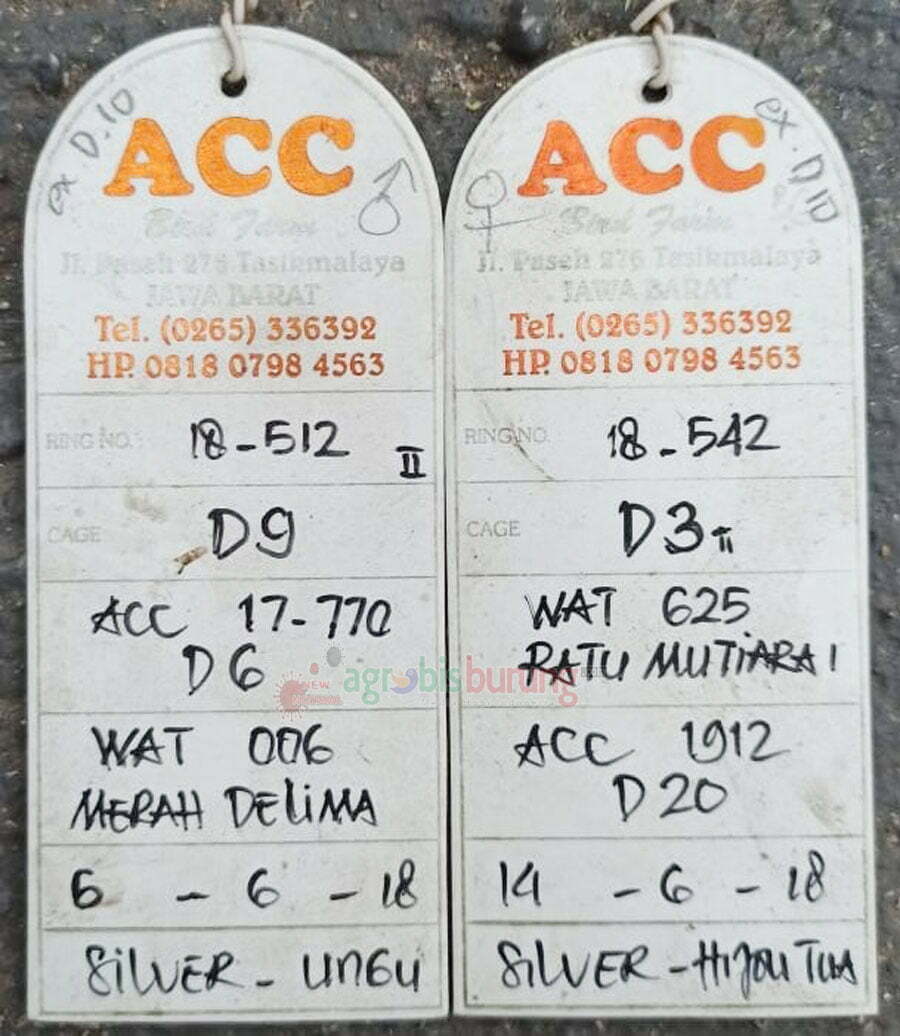 ex D.10
ACC
♂
Bird Farm
Jl. Paseh 276 Tasikmalaya
JAWA BARAT
Tel. (0265) 336392
HP. 0818 0798 4563
RING NO. 18-512
II
CAGE D9
ACC 17-770
D6
WAT 006
MERAH DELIMA
6 - 6 - 18
SILVER - UNGU
ex. D10
ACC
♀
Bird Farm
Jl. Paseh 276 Tasikmalaya
JAWA BARAT
Tel. (0265) 336392
HP. 0818 0798 4563
RING NO. 18-542
CAGE D3 II
WAT 625
RATU MUTIARA 1
ACC 1912
D20
14 - 6 - 18
SILVER - HIJAU TUA
NEW agrobisburung